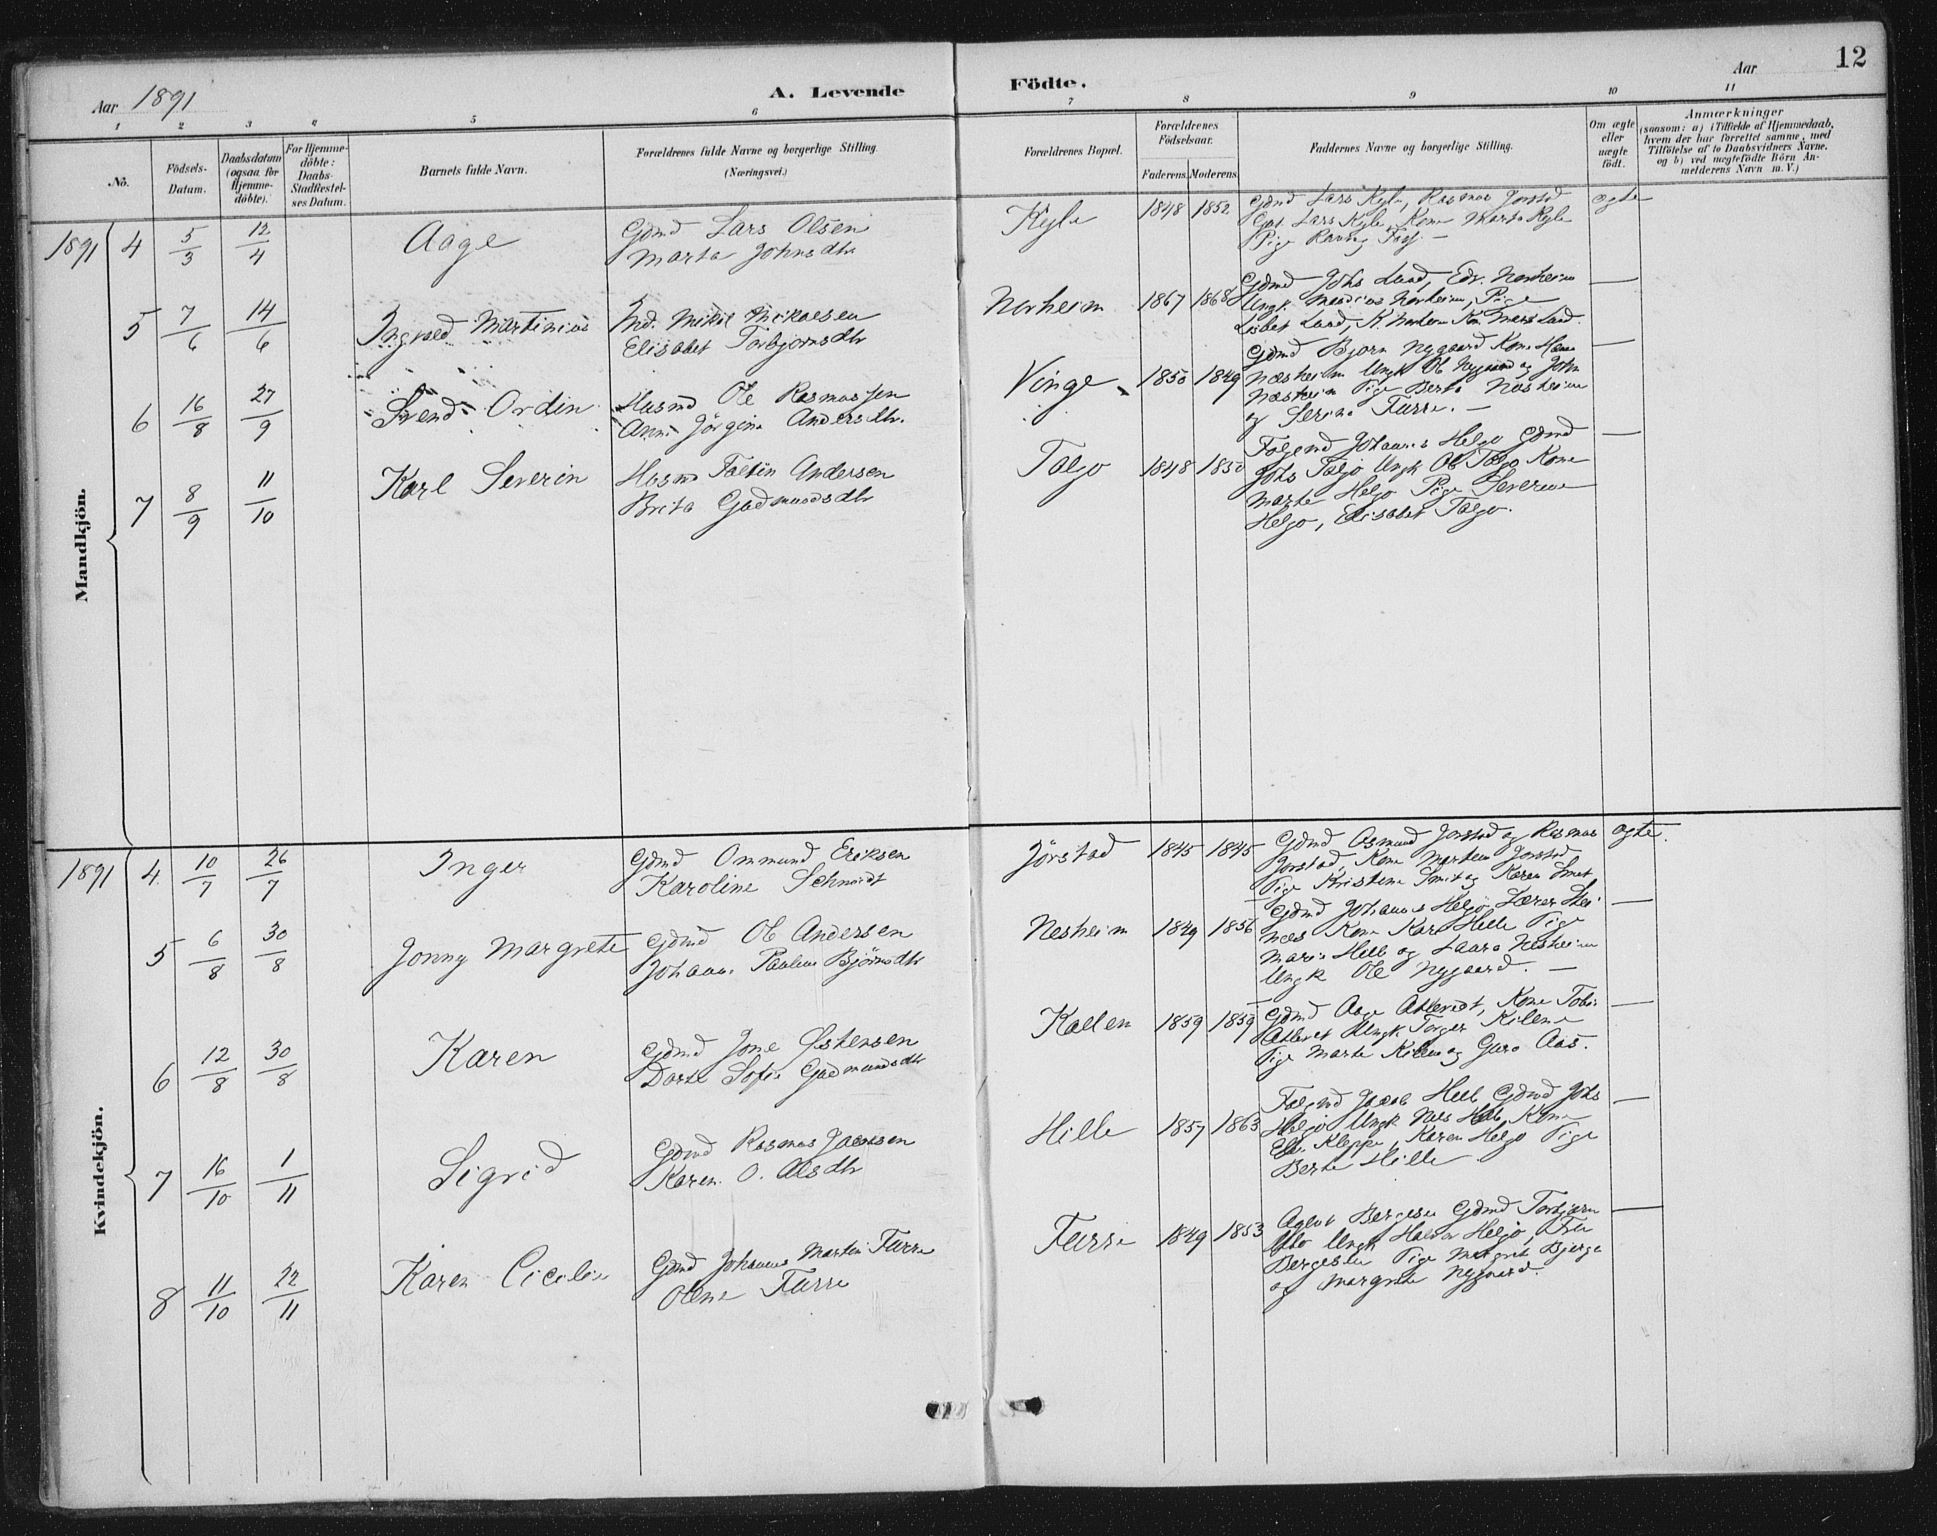 Aar 1891
A. Levende
Födte.
Aar
12
1 2 3 4 5 6 7 8 9 10 11
No.
Födsels-
Datum.
Daabsdatum
(ogsaa for
Hjemme-
döbte).
For Hjemme-
döbte:
Daabs-
Stadfæstel-
ses Datum.
Barnets fulde Navn.
Forældrenes fulde Navne og borgerlige Stilling.
(Næringsvei.)
Forældrenes Bopæl.
Forældrenes
Födselsaar.
Faderens. Moderens.
Faddernes Navne og borgerlige Stilling.
Om ægte
eller
uægte
födt.
Anmærkninger
(saasom: a) i Tilfælde af Hjemmedaab,
hvem der har forrettet samme, med
Tilföielse af to Daabsvidners Navne,
og b) ved uægtefödte Börn An-
melderens Navn m. V.)
Mandkjön.
1891 4 5/3 12/4 Aage
Gdmd Lars Olsen
Marta Johnsdtr
Kyle 1848 1852
Gdmd Lars Kyle, Rasmus Jorstad
Lars Kyle, Kone Marta Kyle
Pige
ægte
5 7/6 14/6 Ingvald Martinius
Ind. Mikal Mikalsen
Elisabet Torbjornsdtr
Norheim 1867 1868
Gdmd Johs Land, Edv. Norheim
Ungk. Norheim, Pige
Lisbet Land, K. Norheim Kon. Land.
—
6 16/8 27/9 Svend Ordin
Husmd Ole Rasmussen
Anna Jörgine Andersdtr.
Vinge 1850 1849
Gdmd Bjorn Nygaard Kone
Næsheim Ungk Ole Nygaard og John
Næsheim Pige Berta Nesheim
og Serina Furre. —
—
7 8/9 11/10 Karl Severin
Husmd Faltin Andersen
Brita Gudmundsdtr
Talgo 1848 1850
Johannes Helgo Gdmd
Johs Talgo Ungk Ole Talgo Kone
Marta Helgo Pige Severine
Helgo, Elisabet Talgo.
—
Kvindekjön.
1891 4 10/7 26/7 Inger
Gdmd Ommund Eriksen
Karoline Schmidt
Jörstad 1845 1845
Gdmd Osmund Jorstad og Rasmus
Jorstad, Kone Jorstad
Pige Kristene Smit og Karen Smit
ægte.
5 6/8 30/8 Jonny Margrete
Gdmd Ole Andersen
Johanne Pauline Bjørnsdtr
Nesheim 1849 1856
Gdmd Johannes Helgo Lærer
Kone Kari Hille Pige
Marie Hille og Laura Nesheim
Ungk Ole Nygaard. —
—
6 12/8 30/8 Karen
Gdmd Jone Østensen
Dorte Sofie Gudmundsdtr
Kallen 1859 1859
Gdmd Aage Kone
Ungk Torger Kilene
Pige Marta Kilen og Guro Aas.
—
7 16/10 1/11 Sigrid
Gdmd Rasmus Jacobsen
Karen O. Olsdtr
Hille 1857 1863
Jacob Hille Gdmd Johs
Helgo Ungk Nils Hille Kone
Kleppe, Karen Helgo Pige
Berta Hille
—
8 11/10 22/11 Karen Cicilie
Gdmd Johannes Martin Furre
Olene Furre
Furre 1849 1853
Bergesen Gdmd Torbjørn
Ungk Halvor Helgo,
Pige Margret Bjerga
og Margrete Nygaard.
—